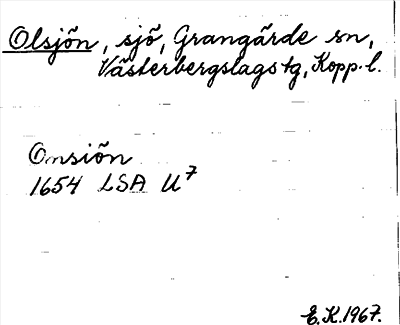 Olsjön, sjö, Grangärde sn,
Västerbergslags tg, Kopp. l.
Onsiön
1654 LSA U7
E.K.1967.